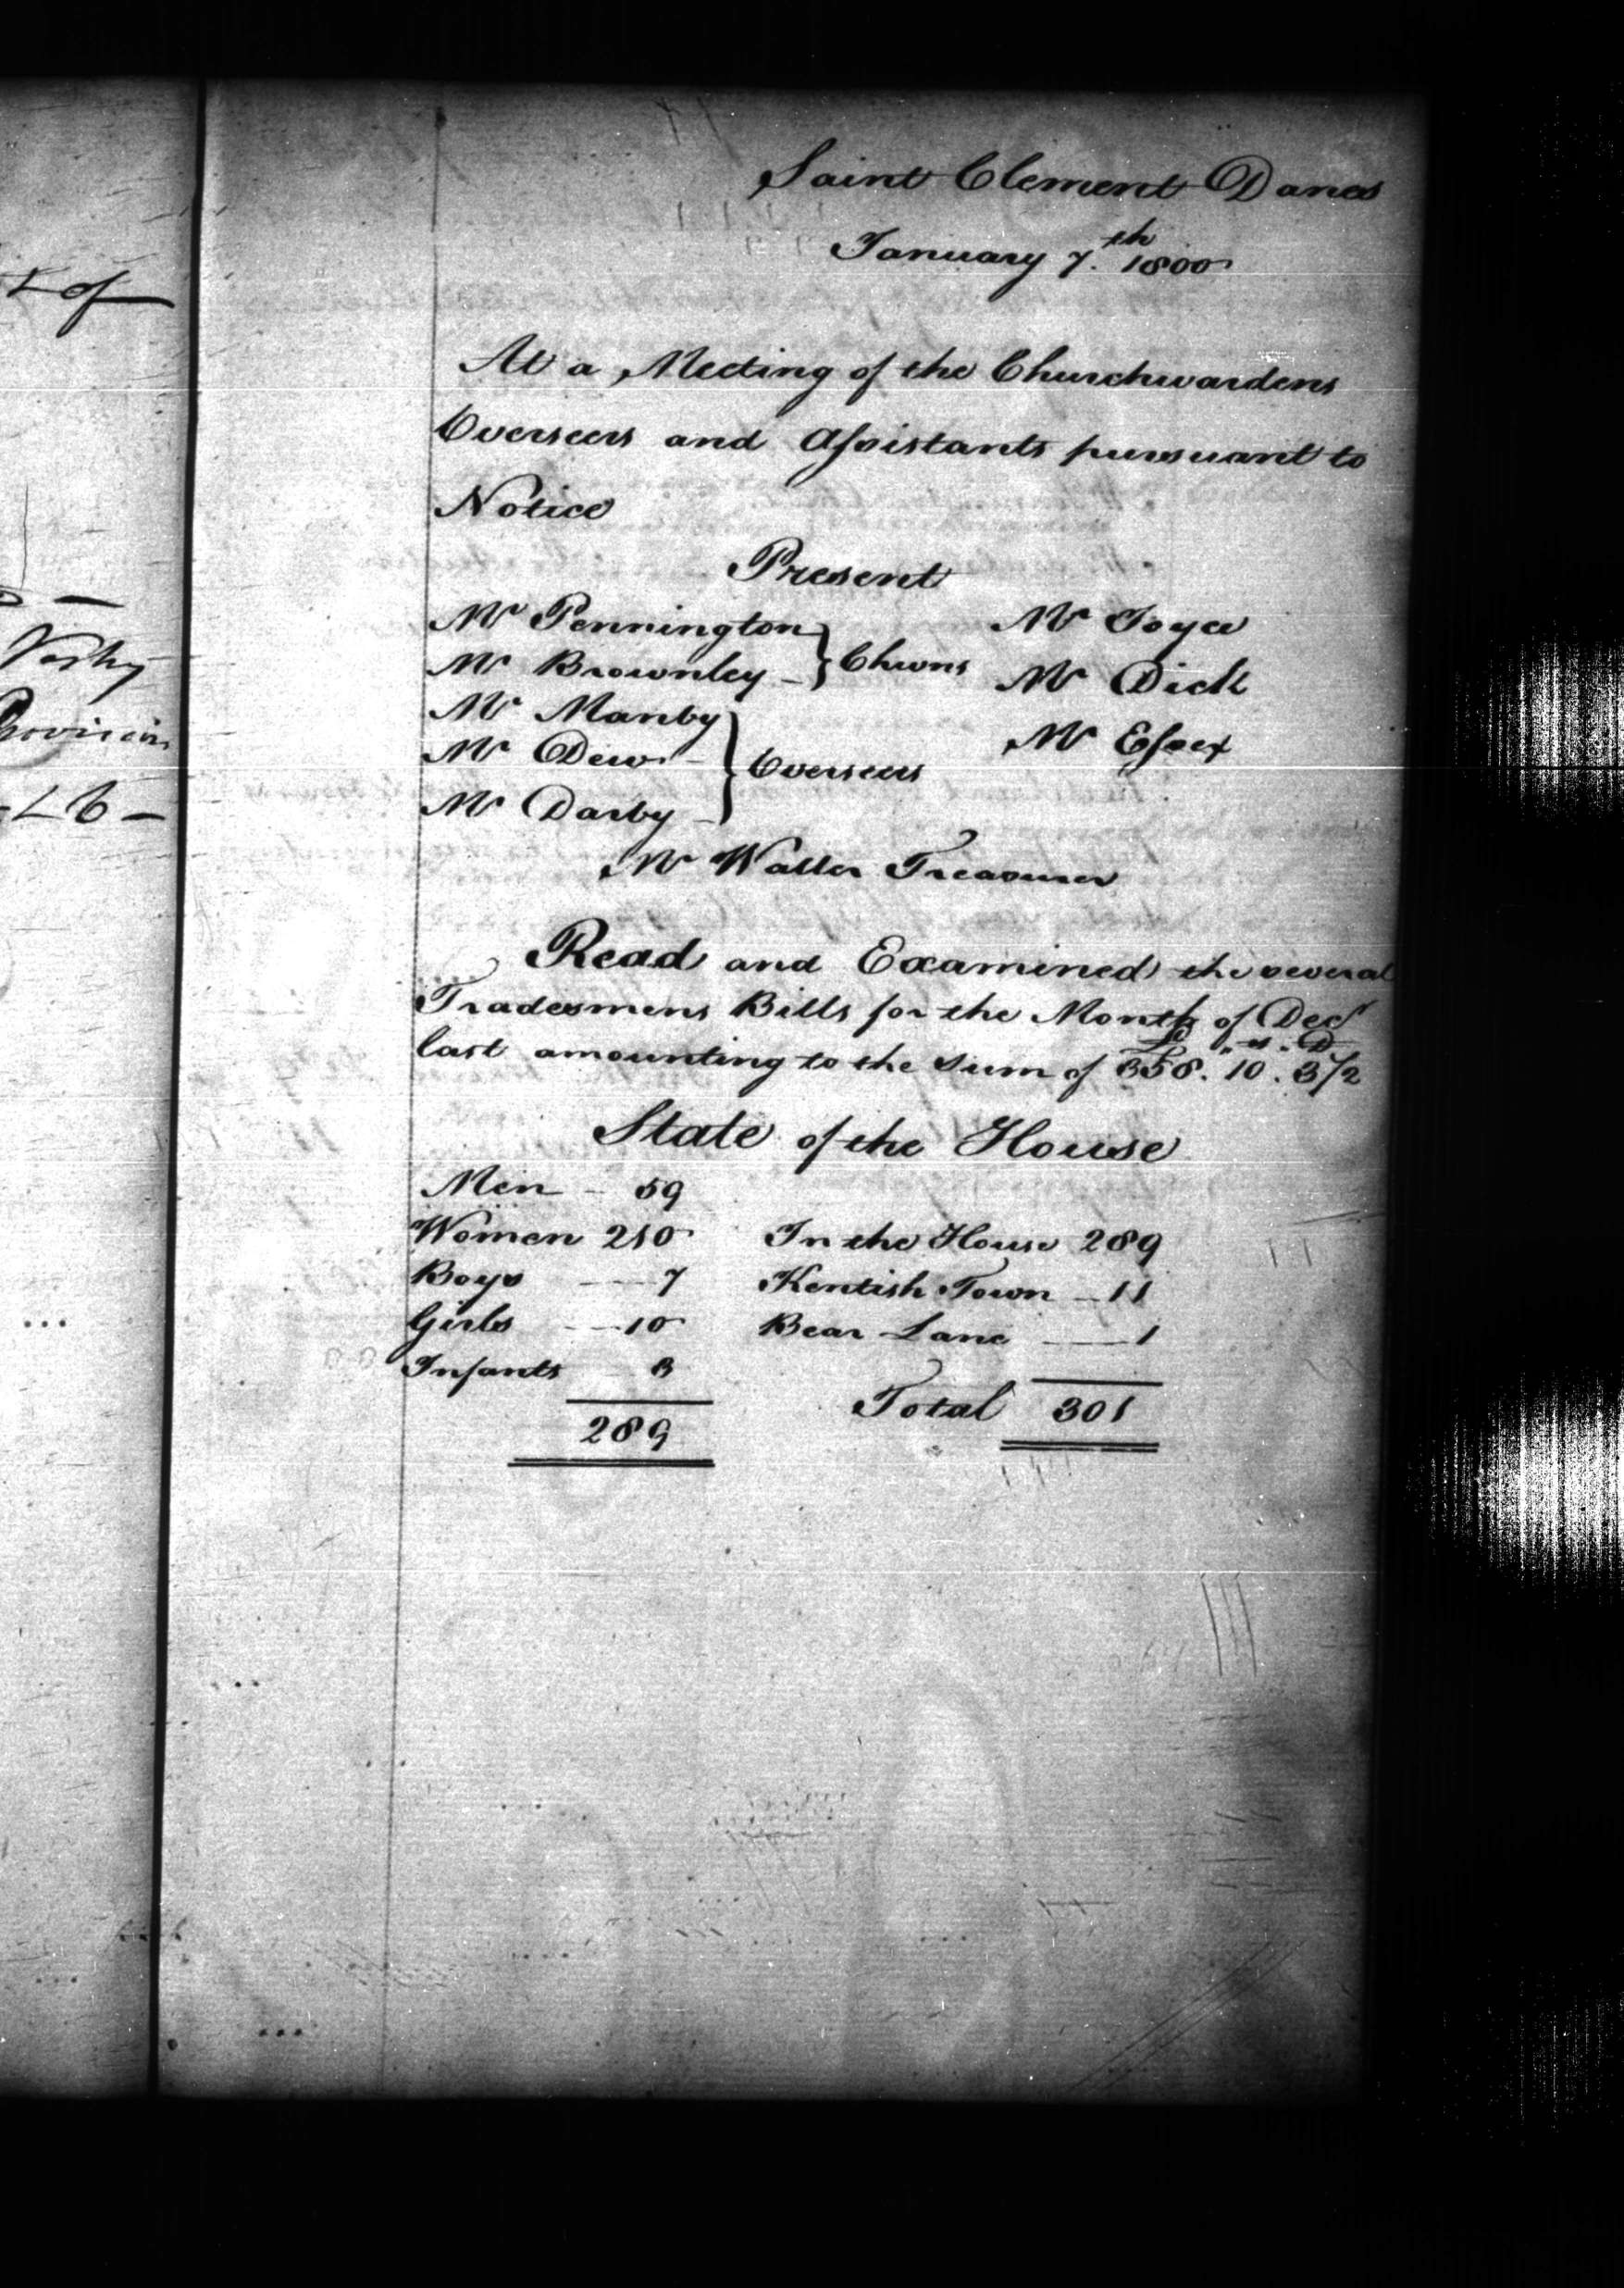 Saint Clement Danes
January 7.th 1800
At a Meeting of the Churchwardens
Overseers and Assistants pursuant to
Notice
Present
Mr Pennington
Mr Brownley - } Chwns
Mr Manby
Mr Dew -
Mr Darby - } Overseers
Mr Joyce
Mr Dick
Mr Essex
Mr Waller Treasurer
Read and Examined the several
Tradesmens Bills for the Month of Decr
£ " s " D
last amounting to the Sum of 358. 10. 3/2
State of the House
Men - 59
Women 210
Boys - 7
Girls - 10
Infants 3
289
In the House 289
Kentish Town - 11
Bear Lane - 1
Total 301
of
Provision